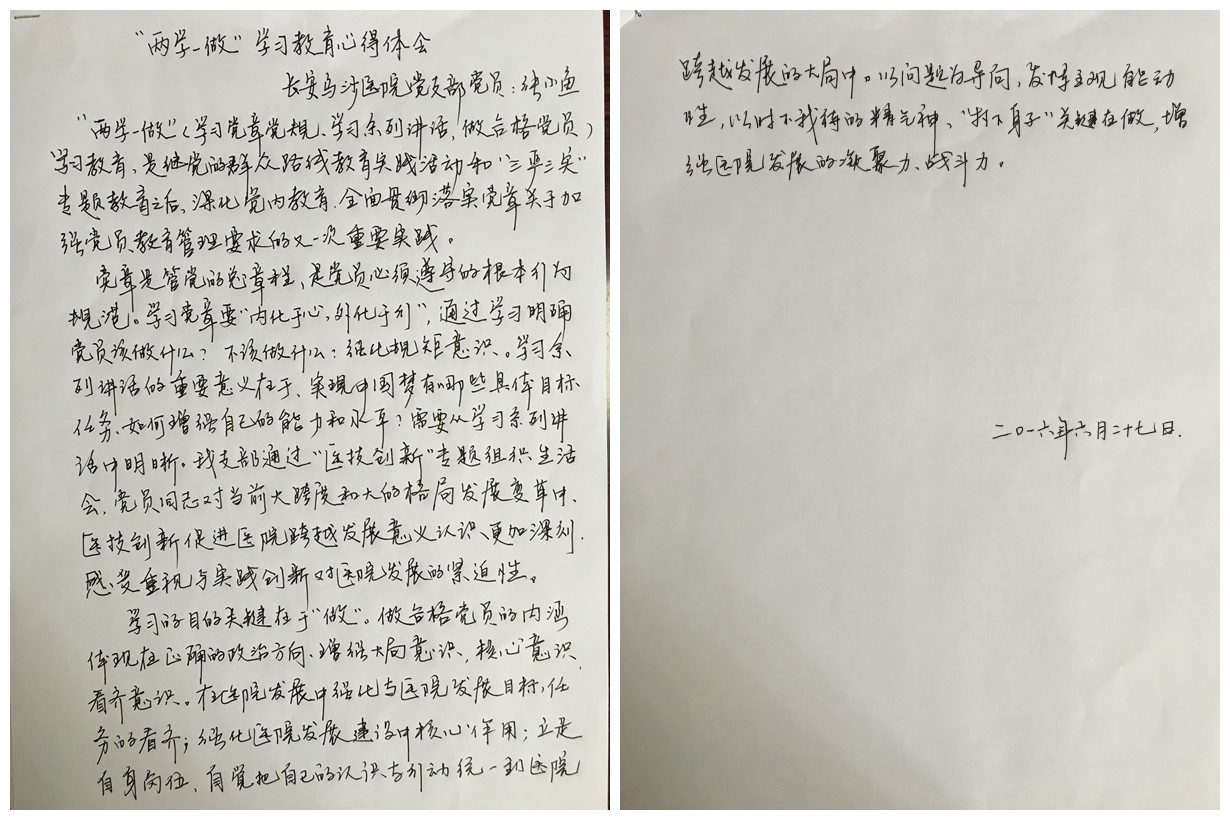 “两学一做”学习教育心得体会
长安乌沙医院党支部党员：张小鱼
“两学一做”（学习党章党规、学习系列讲话，做合格党员）
学习教育，是继党的群众路线教育实践活动和“三严三实”
专题教育之后，深化党内教育，全面贯彻落实党章关于加
强党员教育管理要求的又一次重要实践。
党章是管党的总章程，是党员必须遵守的根本行为
规范。学习党章要“内化于心，外化于行”，通过学习明确
党员该做什么？不该做什么？强化规矩意识。学习系
列讲话的重要意义在于、实现中国梦有哪些具体目标
任务、如何增强自己的能力和水平？需要从学习系列讲
话中明晰。我支部通过“医技创新”专题组织生活
会，党员同志对当前大跨度和大的格局发展变革中，
医技创新促进医院跨越发展意义认识更加深刻，
感受重视与实践创新对医院发展的紧迫性。
学习的目的关键在于“做”。做合格党员的内涵
体现在正确的政治方向、增强大局意识，核心意识，
看齐意识。在医院发展中强化与医院发展目标，任
务的看齐；强化医院发展建设中核心作用；立足
自身岗位，自觉把自己的认识与行动统一到医院
跨越发展的大局中。以问题为导向，发挥主观能动
性，以时不我待的精气神、“扑下身子”关键在做，增
强医院发展的凝聚力、战斗力。
二〇一六年六月二十七日.